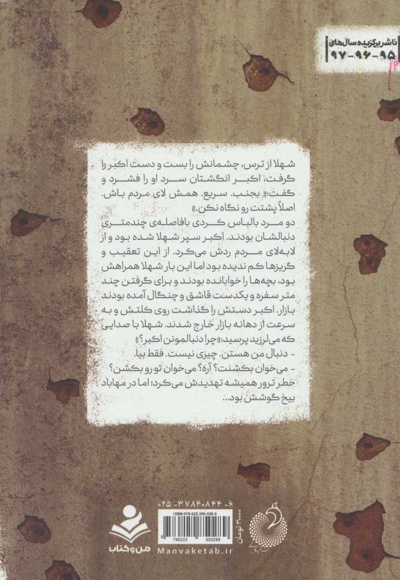 ناشر برگزیده سال‌های
۹۵-۹۶-۹۷
شهلا از ترس، چشمانش را بست و دست اکبر را
گرفت؛ اکبر انگشتان سرد او را فشرد و
گفت:« بجنب. سریع. همش لای مردم باش.
اصلاً پشتت رو نگاه نکن.»
دو مرد بالباس کردی بافاصله‌ی چندمتری
دنبالشان بودند. اکبر سپر شهلا شده بود و از
لابه‌لای مردم ردش می‌کرد. از این تعقیب و
گریزها کم ندیده بود اما این بار شهلا همراهش
بود، بچه‌ها را خوابانده بودند و برای گرفتن چند
متر سفره و یکدست قاشق و چنگال آمده بودند
بازار. اکبر دستش را گذاشت روی کلتش و به
سرعت از دهانه بازار خارج شدند. شهلا با صدایی
که می‌لرزید پرسید:«چرا دنبالمونن اکبر؟»
- دنبال من هستن. چیزی نیست. فقط بیا.
- می‌خوان بکشنت؟ آره؟ می‌خوان تو رو بکشن؟
خطر ترور همیشه تهدیدش می‌کرد؛ اما در مهاباد
بیخ گوشش بود...
۰۲۵-۳۷۸۴۰۸۴۴-۶
من و کتاب
Manvaketab.ir
۳۰۰۰۰ تومان